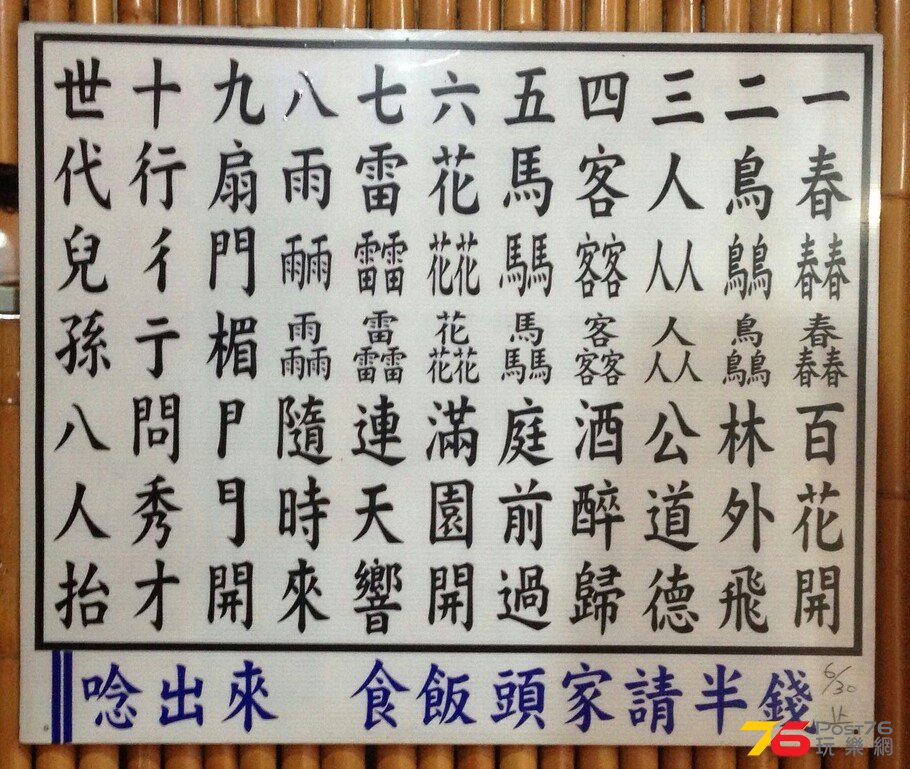 一春春春春春春百花開
二鳥鳥鳥鳥鳥鳥林外飛
三人人人人人人公道德
四客客客客客客酒醉歸
五馬馬馬馬馬馬庭前過
六花花花花花花滿園開
七雷雷雷雷雷雷連天響
八雨雨雨雨雨雨隨時來
九扇門楣𠁣𠃛開
十行彳亍問秀才
世代兒孫八人抬
唸出來 食飯頭家請半錢
6/30
76 Post76
玩樂網